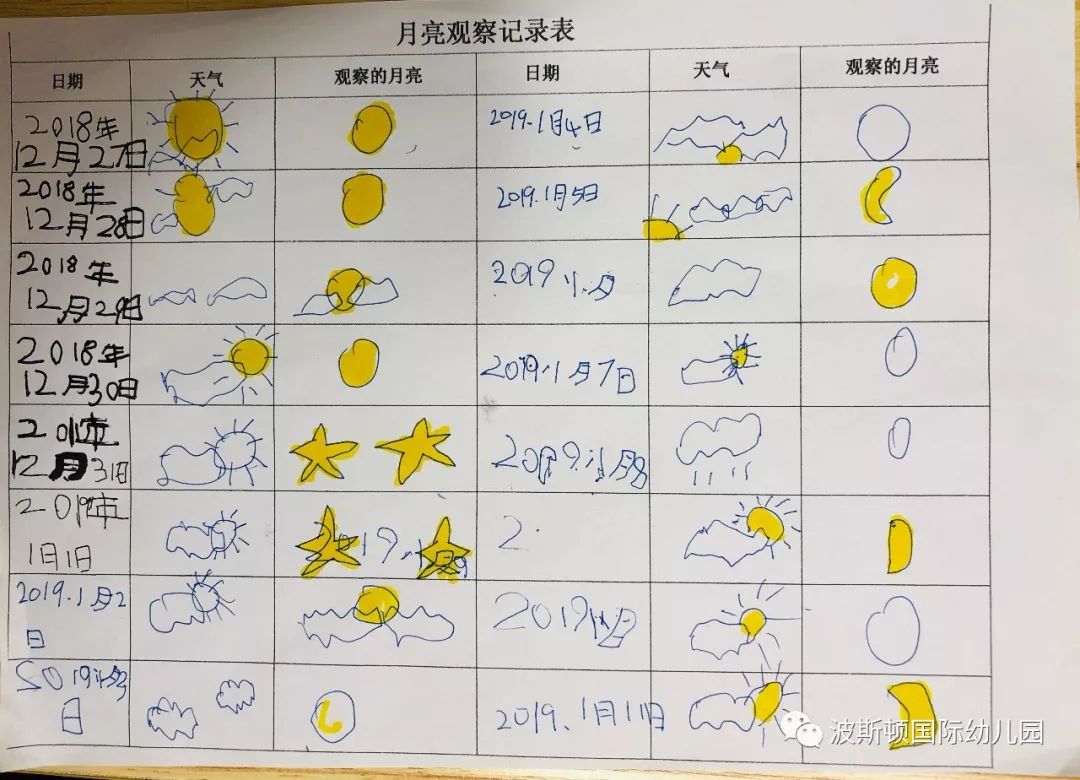 月亮观察记录表
日期 天气 观察的月亮 日期 天气 观察的月亮
2018年
12月27日
2019.1月4日
2018年
12月28日
2019.1月5日
2018年
12月29日
2019
2018年
12月30日
2019.1月7日
12月31日
2019.1月8
1日1日
2019.1
2
2019.1月2
日
2019
2019
日
2019.1月11日
波斯顿国际幼儿园